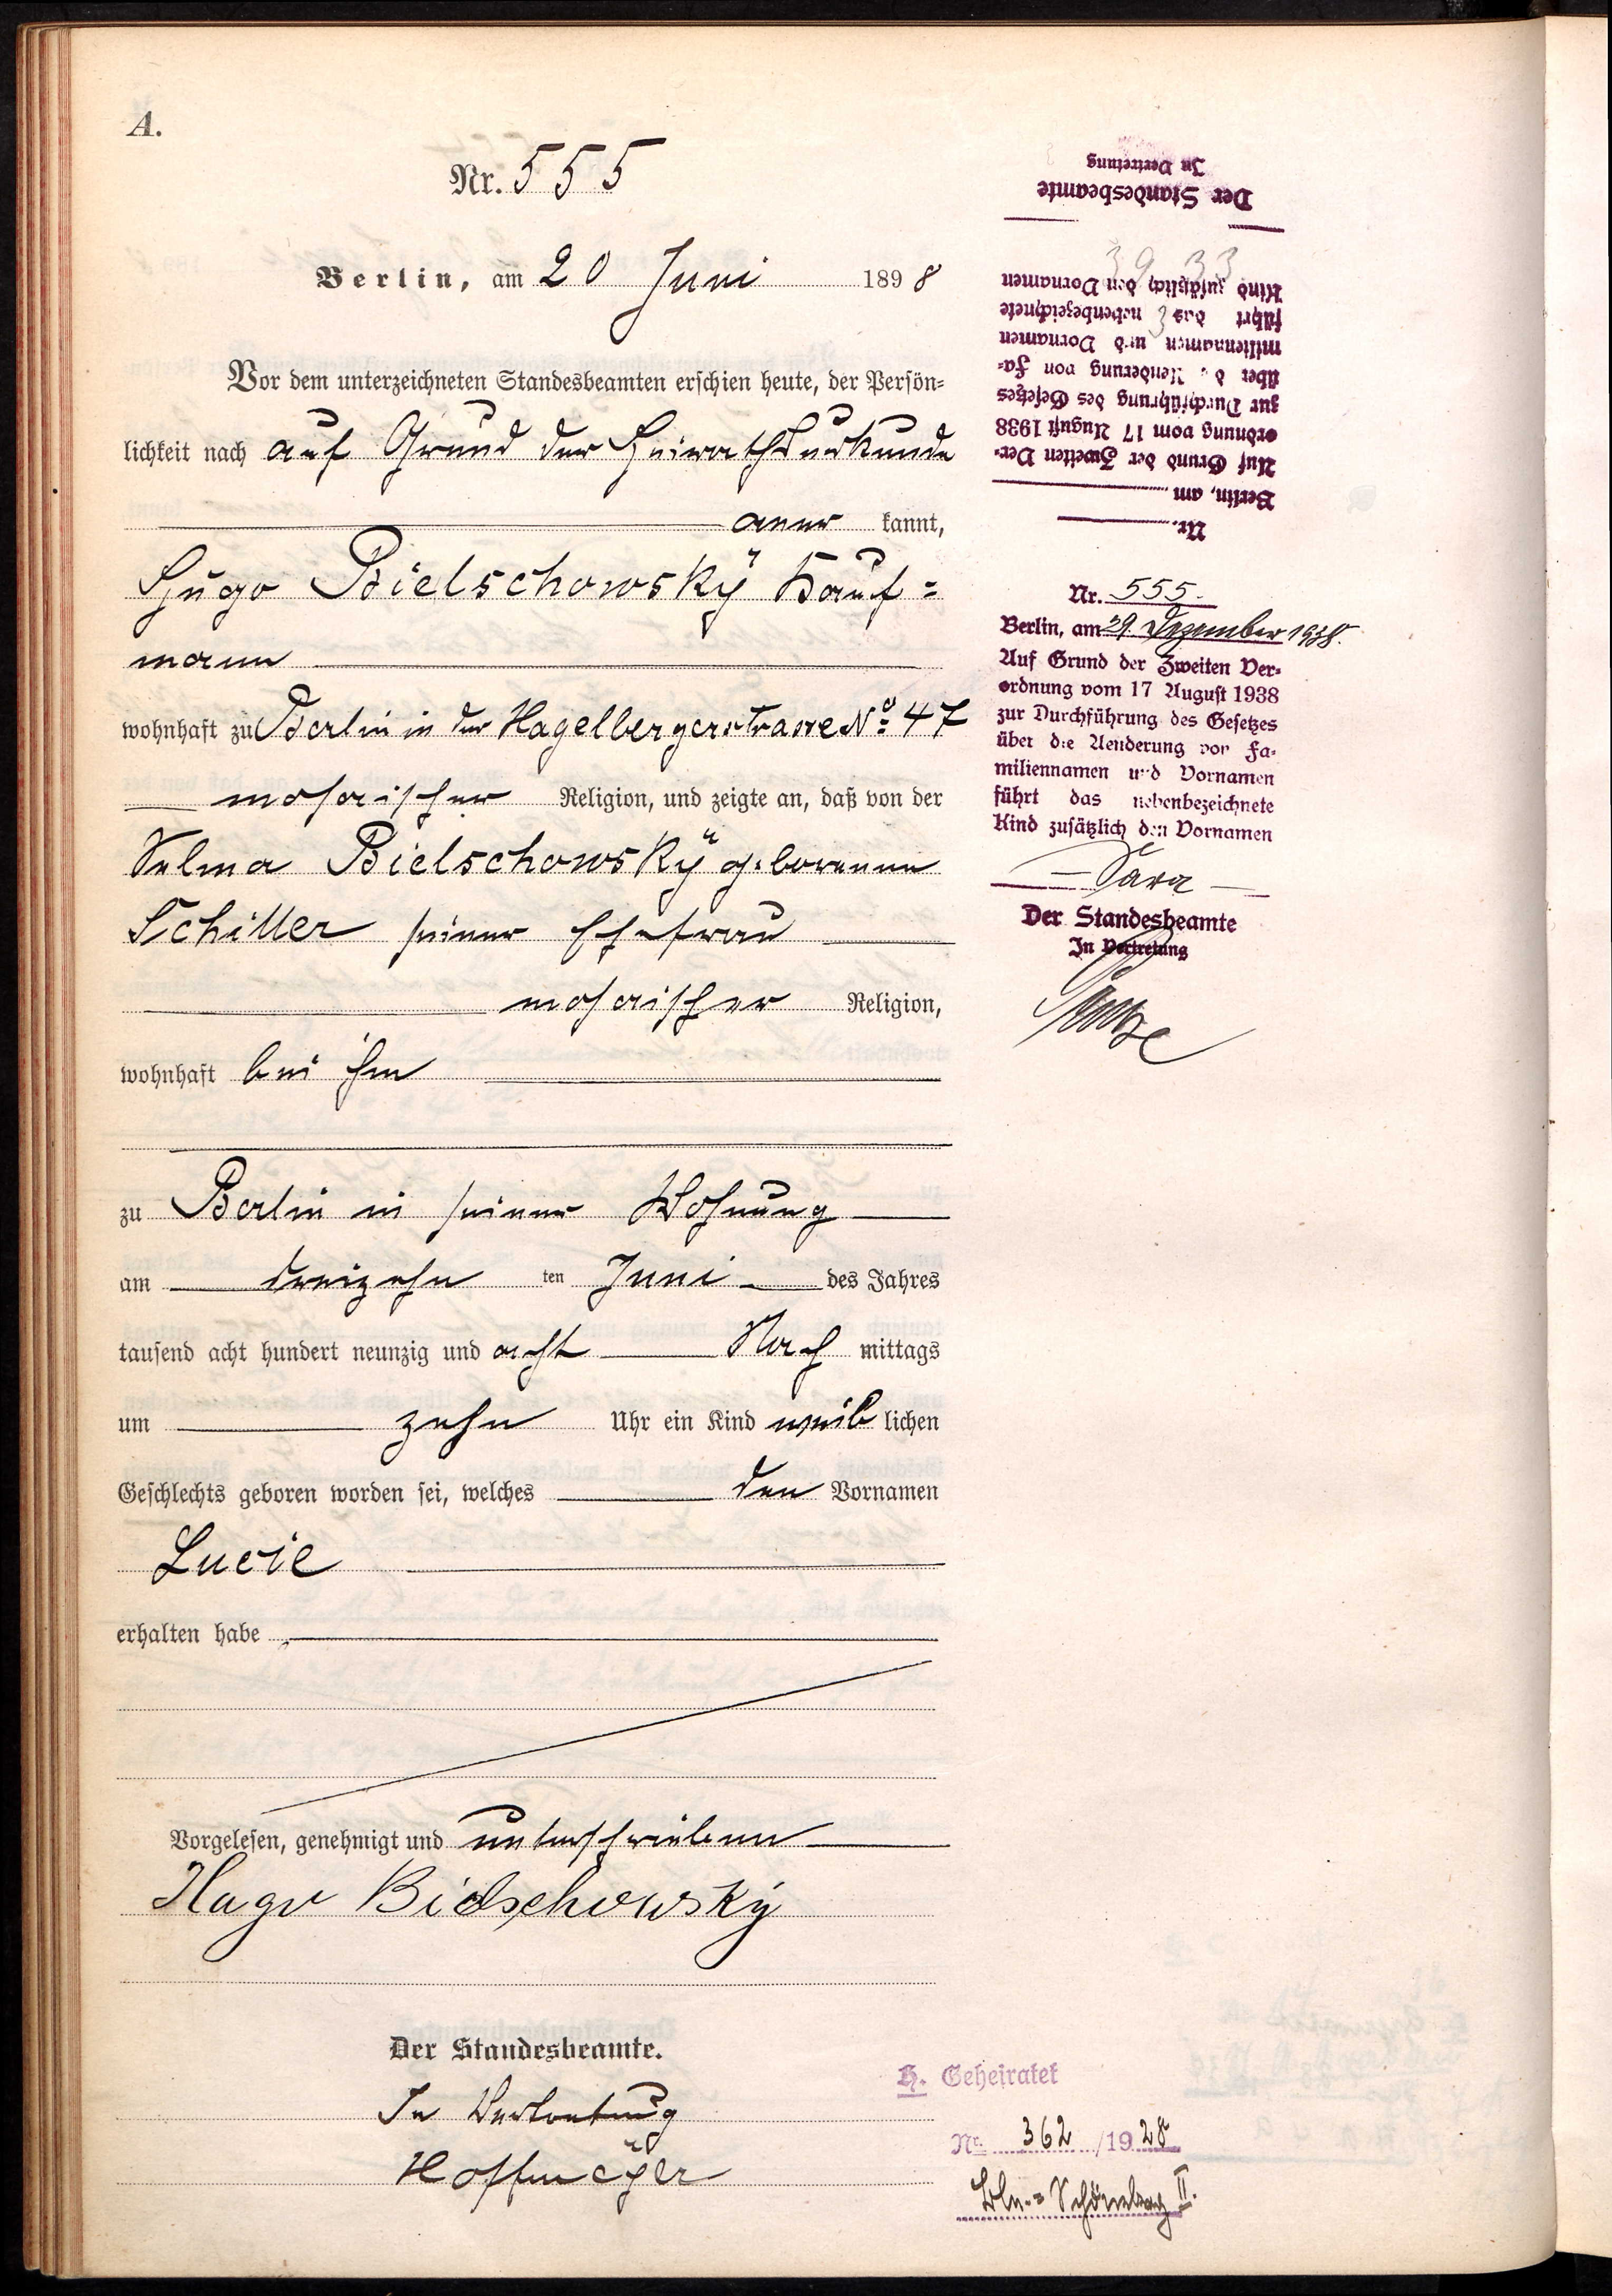 A.
Nr. 555
Berlin, am 20 Juni 1898
Vor dem unterzeichneten Standesbeamten erschien heute, der Persön=
lichkeit nach auf Grund der Heirathsurkunde
aner kannt,
Hugo Bielschowsky Kauf=
mann
wohnhaft zu Berlin in der Hagelbergerstrasse No 47
mosaischer Religion, und zeigte an, daß von der
Selma Bielschowsky geborenen
Schiller seiner Ehefrau
mosaischer Religion,
wohnhaft bei ihm
zu Berlin in seiner Wohnung
am dreizehn ten Juni des Jahres
tausend acht hundert neunzig und acht Nach mittags
um zehn Uhr ein Kind weib lichen
Geschlechts geboren worden sei, welches den Vornamen
Lucie
erhalten habe
Vorgelesen, genehmigt und unterschrieben
Hugo Bielschowsky
Der Standesbeamte.
In Vertretung
Nr.
Berlin, am
Auf Grund der Zweiten Ver-
ordnung vom 17 August 1938
zur Durchführung des Gesetzes
über die Aenderung von Fa-
miliennamen und Vornamen
führt das nebenbezeichnete
Kind zusätzlich den Vornamen
Der Standesbeamte
In Vertretung
Nr. 555.
Berlin, am 29. Dezember 1938.
Auf Grund der Zweiten Ver-
ordnung vom 17 August 1938
zur Durchführung des Gesetzes
über die Aenderung von Fa-
miliennamen und Vornamen
führt das nebenbezeichnete
Kind zusätzlich den Vornamen
- Sara -
Der Standesbeamte
In Vertretung
H. Geheiratet
Nr. 362 /1928
Bln.=Schöneberg II.